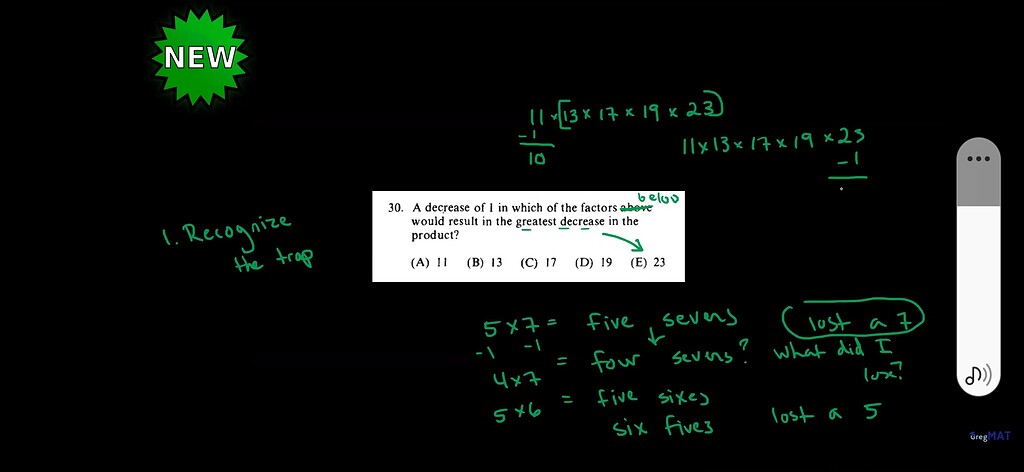 NEW
11 × [13 × 17 × 19 × 23]
-1
10
11 × 13 × 17 × 19 × 23
-1
30. A decrease of 1 in which of the factors above below
would result in the greatest decrease in the
product?
(A) 11 (B) 13 (C) 17 (D) 19 (E) 23
1. Recognize
the trap
5 × 7 = five sevens lost a 7
-1 -1
4 × 7 = four sevens? what did I
lose?
5 × 6 = five sixes
six fives lost a 5
GregMAT